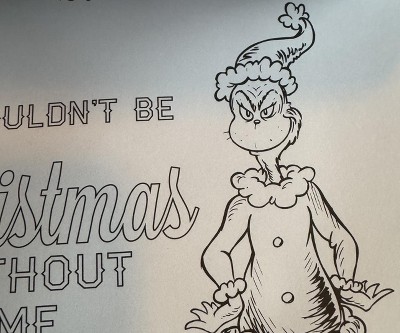 ULDN'T BE
istmas
THOUT
ME